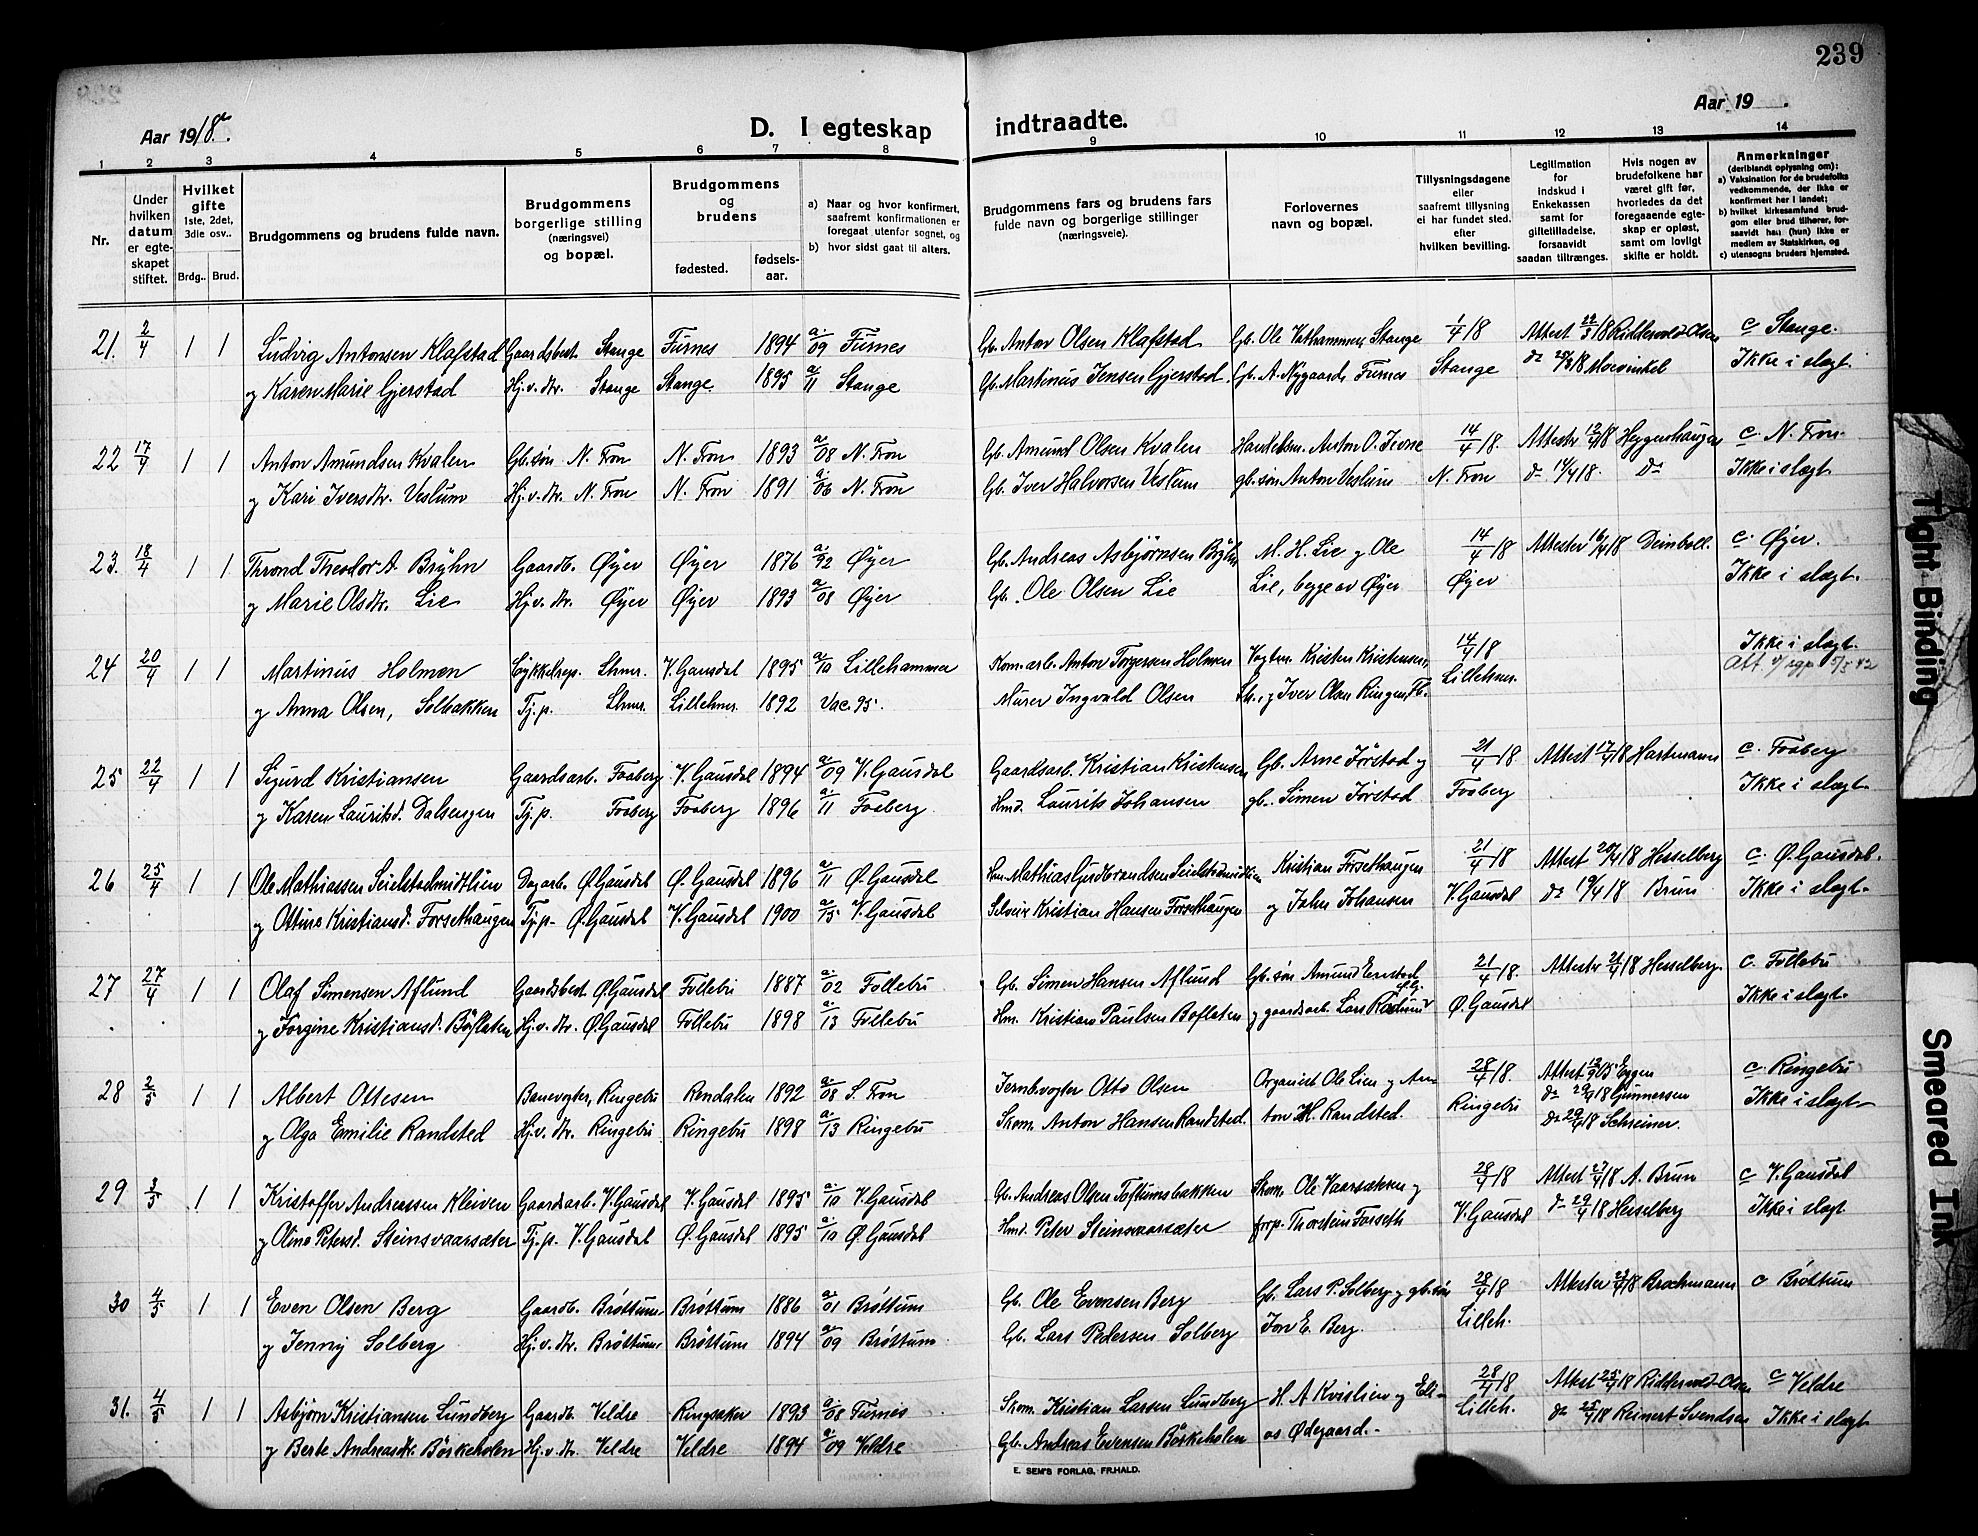 239
Aar 1918.
D. I egteskap indtraadte.
Aar 19 .
1 2 3 4 5 6 7 8 9 10 11 12 13 14
Nr.
Under hvilken datum er egteskapet stiftet.
Hvilket gifte 1ste, 2det, 3die osv.. Brdg.. Brud.
Brudgommens og brudens fulde navn.
Brudgommens borgerlige stilling (næringsvei) og bopæl.
Brudgommens og brudens fødested. fødselsaar.
a) Naar og hvor konfirmert, saafremt konfirmationen er foregaat utenfor sognet, og b) hvor sidst gaat til alters.
Brudgommens fars og brudens fars fulde navn og borgerlige stillinger (næringsveie).
Forlovernes navn og bopæl.
Tillysningsdagene eller saafremt tillysning ei har fundet sted. efter hvilken bevilling.
Legitimation for indskud i Enkekassen samt for giftetilladelse, forsaavidt saadan tiltrænges.
Hvis nogen av brudefolkene har været gift før, hvorledes da det foregaaende egteskap er opløst, samt om lovligt skifte er holdt.
Anmerkninger (deriblandt oplysning om): a) Vaksination for de brudefolks vedkommende, der ikke er konfirmert her i landet; b) hvilket kirkesamfund brudgom eller brud tilhører, forsaavidt han (hun) ikke er medlem av Statskirken, og c) utensogns bruders hjemsted.
21. 2/4 1 1 Ludvig Antonsen Klafstad Gaardsbest. Stange Furnes 1894 a. 09 Furnes Gb. Anton Olsen Klafstad Gb. Ole Stange 1/4 18 Attest 18 Ridderwold-Olsen c Stange.
og Karen Marie Gjerstad Hj.v. dtr. Stange Stange 1895 a. 11 Stange Gb. Martinus Jensen Gjerstad. Gb. A. Nygaard, Furnes Stange do 18 Moevinkel Ikke i slegt.
22 17/4 1 1 Anton Amundsen Kvalen Gb.søn N. Fron N. Fron 1893 a. 08 N. Fron Gb. Amund Olsen Kvalen Handelsm. Anton O. 14/4 18. Attester 12/4 18 Heggenhaugen c. N. Fron.
og Kari Iversdtr. Veslum Hj.v. dtr. N. Fron N. Fron 1891 a. 06 N. Fron Gb. Iver Halvorsen Veslum gb.søn Anton Veslum N. Fron do 18. Do Ikke i slegt
23. 18/4 1 1 Thrond Theodor A. Bryhn Gaardb. Øyer Øyer 1876 a. 92 Øyer Gb. Andreas Asbjørnsen Bryhn M. H. Lie og Ole 14/4 18 Attester 16/4 18 Deinboll. c. Øyer.
og Marie Olsdtr. Lie Hj.v. dtr. Øyer Øyer 1893 a. 08 Øyer Gb. Ole Olsen Lie Lie, begge av Øyer Øyer Ikke i slegt.
24 20/4 1 1 Martinus Holmen Cykkelrep. Lhmr. V. Gausdal 1895 a. 10 Lillehammer Kom.arb. Anton Torgersen Holmen Vogtm. Kristen Kristensen, 14/4 18 Ikke i slegt.
og Anna Olsen, Solbakken Tj.p. Lhmr. Lillehmr. 1892 Vac. 95. Murer Ingvald Olsen og Iver Olsen Ringen, Fb. Lillehmr. 5/5 42
25 22/4 1 1 Sigurd Kristiansen Gaardsarb. Faaberg V. Gausdal 1894 a. 09 V. Gausdal Gaardsarb. Kristian Kristensen Gb. Arne Jørstad og 21/4 18 Attest 17/4 18 Hartmann c. Faaberg
og Karen Lauritsd. Dalsengen Tj.p. Faaberg Faaberg 1896 a. 11 Faaberg Hmd. Laurits Johansen gb. Simen Jørstad Faaberg Ikke i slegt.
26 25/4 1 1 Ole Mathiassen Seielstadmidtlien Dagarb. Ø. Gausdal Ø. Gausdal 1896 a. 11 Ø. Gausdal Hm. Mathias Gudbrandsen Seielstadmidtlien Kristian Forsethaugen 21/4 18 Attest 20/4 18 Hesselberg c. Ø. Gausdal.
og Ottine Kristiansd. Forsethaugen Tj.p. Ø. Gausdal V. Gausdal 1900 a. 15 V. Gausdal Selveier Kristian Hansen Forsethaugen og John Johansen V. Gausdal do 19/4 18 Brun Ikke i slegt.
27 27/4 1 1 Olaf Simensen Aflund Gaardsbest. Ø. Gausdal Follebu 1887 a. 02 Follebu Gb. Simen Hansen Aflund Gb. søn Amund 21/4 18. Attester 18 Hesselberg. c. Follebu
og Jørgine Kristiansd. Bøflaten Hj.v. dtr. Ø. Gausdal Follebu 1898 a. 13 Follebu Hm. Kristian Paulsen Bøflaten og gaardsarb. Lars Ø. Gausdal Ikke i slegt.
28 2/5 1 1 Albert Ottesen Banevogter, Ringebu Rendalen 1892 a. 08 S. Fron Jernb.vogter Otto Olsen Organist Ole Lien og An- 28/4 18. Attest 15 Eggen c. Ringebu
do 18 Gunnersen
og Olga Emilie Randsted Hj.v. dtr. Ringebu Ringebu 1898 a. 13 Ringebu Skom. Anton Hansen Randsted. ton H. Randsted. Ringebu Do 29/4 18 Schreiner. Ikke i slegt
29 3/5 1 1 Kristoffer Andreassen Kleiven Gaardsarb. V. Gausdal V. Gausdal 1895 a. 10 V. Gausdal Gb. Andreas Olsen Toftumsbakken Skom. Ole Vaarsækken og 28/4 18 Attest 27/4 18 A. Brun c V. Gausdal
og Oline Petersd. Steinsvaarsæter Tj.p. V. Gausdal Ø. Gausdal 1895 a. 10 Ø. Gausdal Hmd. Peter Steinsvaarsæter forp. Thorstein Forseth V. Gausdal do 29/4 18 Hesselberg Ikke i slegt
30 4/5 1 1 Even Olsen Berg Gaardb. Brøttum Brøttum 1886 a. 01 Brøttum Gb. Ole Evensen Berg Gb. Lars P. Solberg og gb.søn 28/4 18 Attester 23/4 18 Brochmann c Brøttum
og Jenny Solberg Hj.v. dtr. Brøttum Brøttum 1894 a. 09 Brøttum. Gb. Lars Pedersen Solberg Jon E. Berg. Lilleh.
31. 4/5 1 1 Asbjørn Kristiansen Lundberg Gaardb. Veldre Ringsaker 1893 a. 08 Furnes Skom. Kristian Larsen Lundberg H. A. Kvislien og Eli- 28/4 18 Attest 25/4 18 Ridderwold-Olsen c Veldre
og Berte Andreasdtr. Børkeholen Hj.v. dtr. Veldre Veldre 1894 a. 09 Veldre Gb. Andreas Evensen Børkeholen as Ødegaard. Lilleh. do 25/4 18 Reinert Svendsen Ikke i slegt
E. SEM'S FORLAG, FR.HALD.
Tight Binding
Smeared Ink